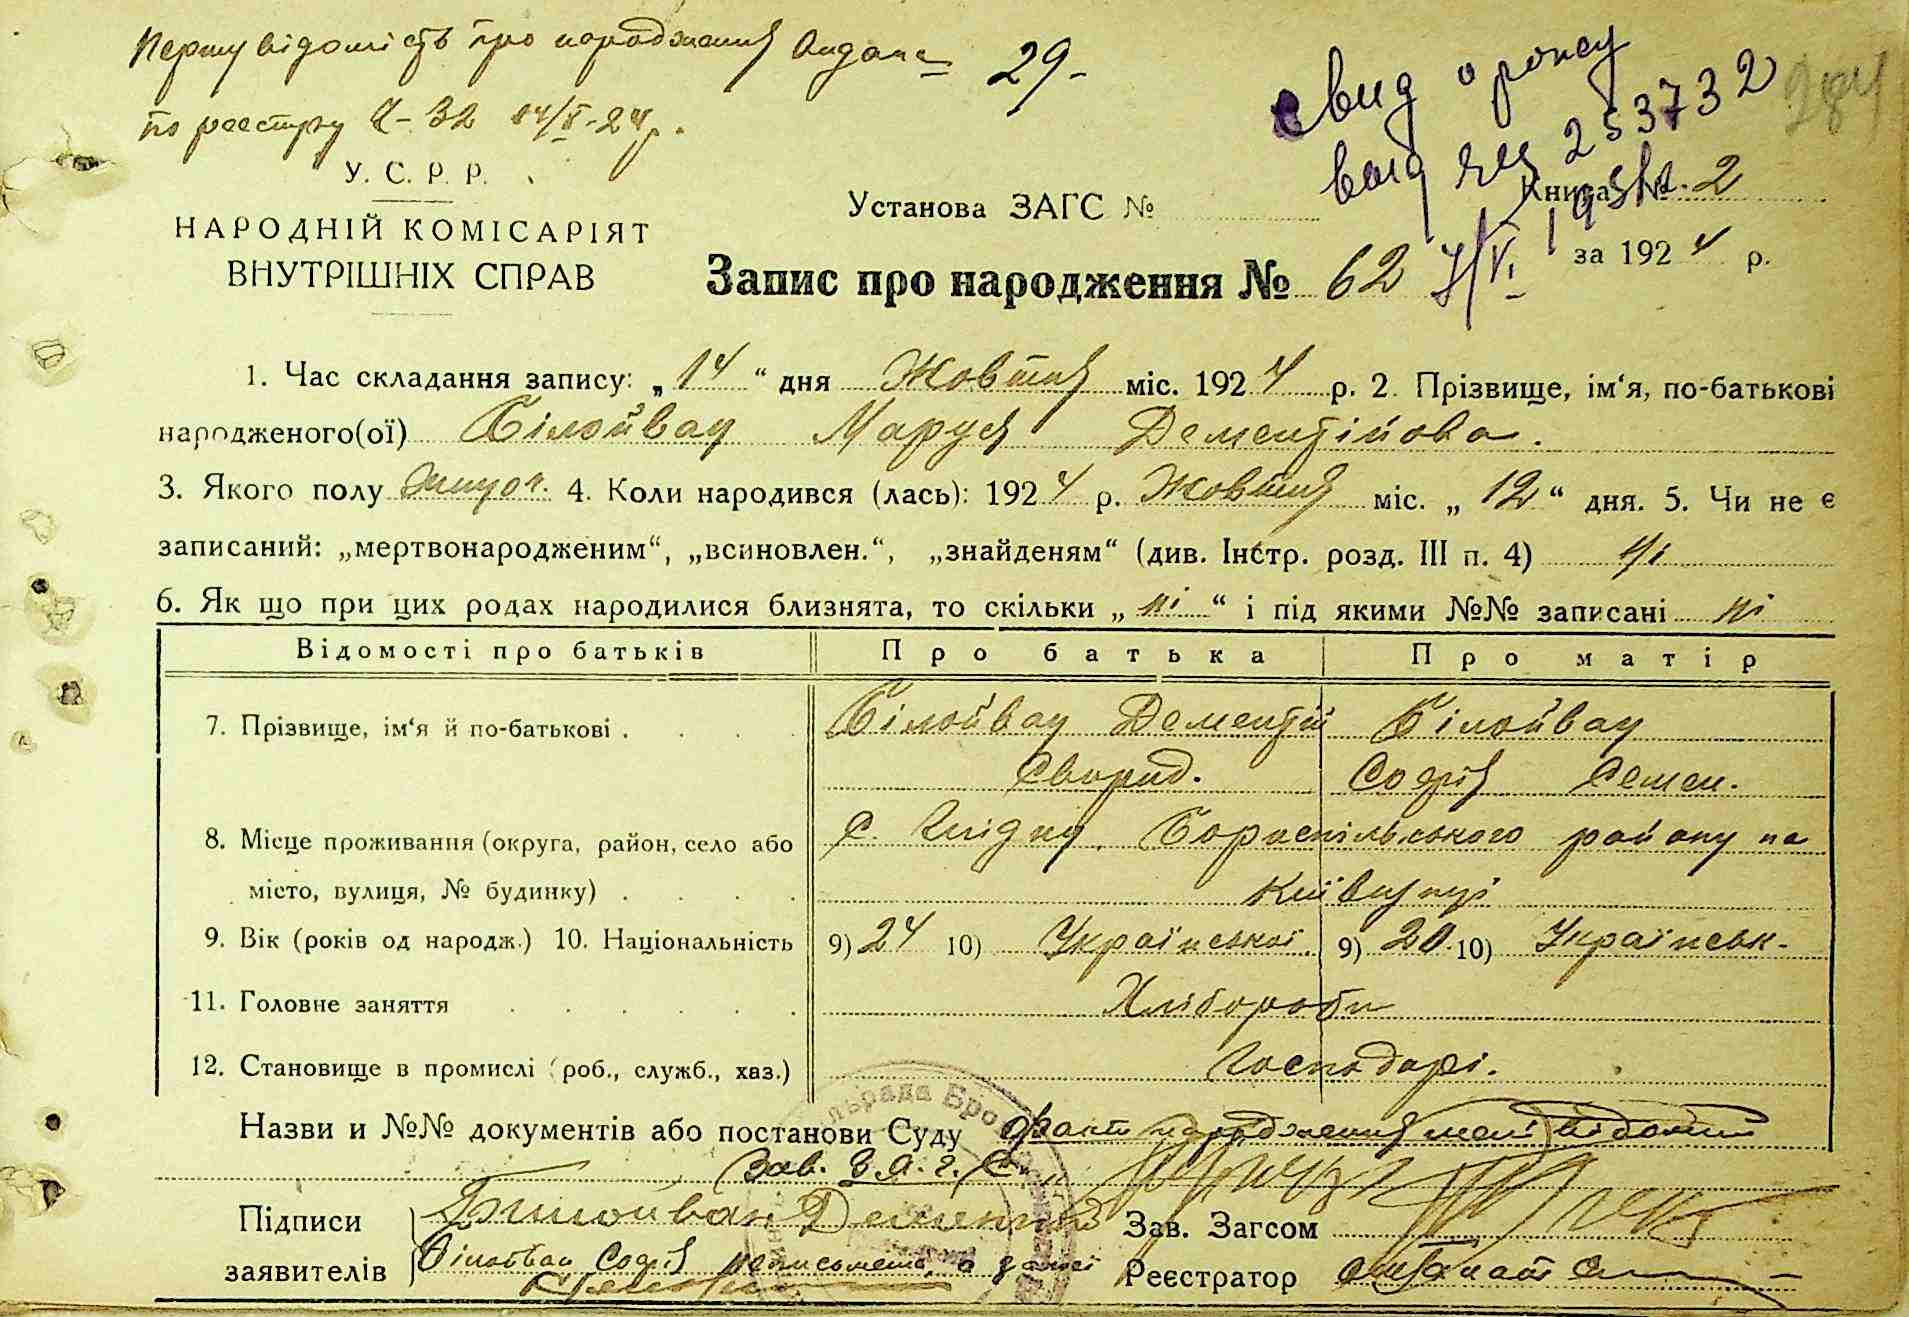 Першу відомість про народження видано 29-
по реєстру Ч- 32 14/X-24 р.
свид о рожд
выд ящ 253732
284
У. С. Р. Р.
Установа ЗАГС №
Книга № 2
НАРОДНІЙ КОМІСАРІЯТ
ВНУТРІШНІХ СПРАВ
Запис про народження № 62
7/VI
за 1924 р.
1. Час складання запису: „14“ дня Жовтня міс. 1924 р. 2. Прізвище, ім‘я, по-батькові
народженого(ої) Білойван Маруся Дементійова.
3. Якого полу жіноч. 4. Коли народився (лась): 1924 р. Жовтня міс. „12“ дня. 5. Чи не є
записаний: „мертвонародженим“, „всиновлен.“, „знайденям“ (див. Інстр. розд. III п. 4) ні
6. Як що при цих родах народилися близнята, то скільки „ні“ і під якими №№ записані ні
Відомості про батьків Про батька Про матір
7. Прізвище, ім‘я й по-батькові . . . . Білойван Дементій Білойван
Свирид. Софія Семен.
8. Місце проживання (округа, район, село або С. Гнідин Бориспільського району на
місто, вулиця, № будинку) . . . . Київщині
9. Вік (років од народж.) 10. Національність 9) 24 10) Української 9) 20 10) Українськ.
11. Головне заняття Хлібороби
12. Становище в промислі (роб., служб., хаз.) Господарі.
Назви и №№ документів або постанови Суду факт народження мені відомий
Зав. З.А.Г.С.
Підписи Білойван Дементій Зав. Загсом
заявителів Білойван Софія неписьмена, а за неї Реєстратор